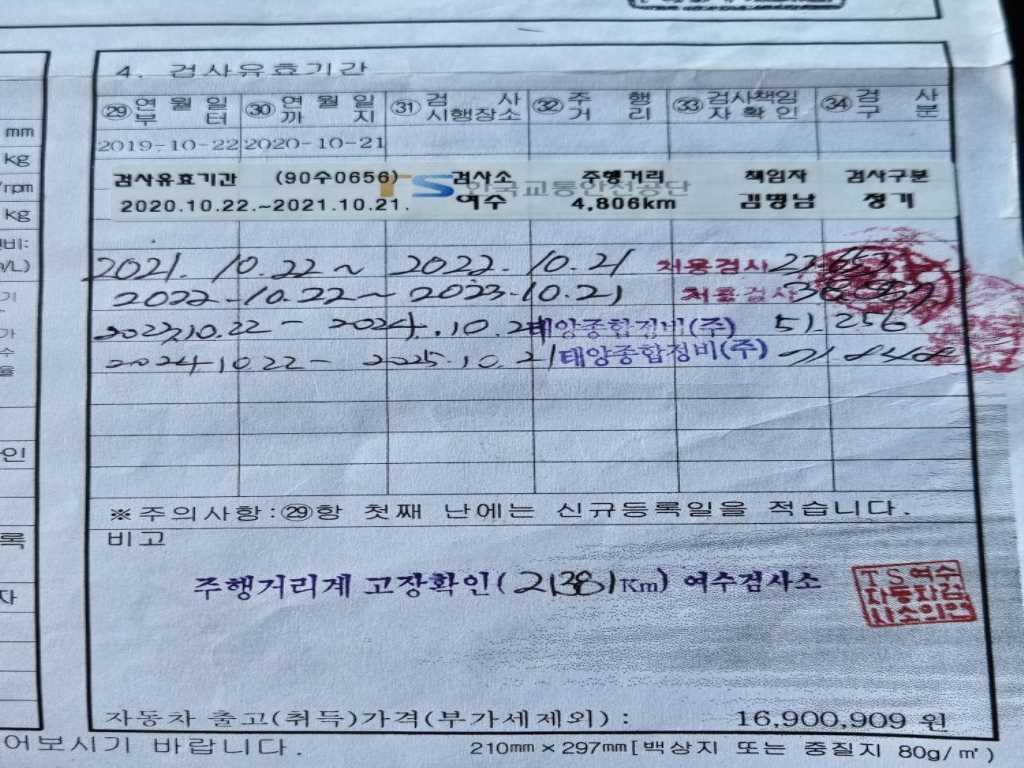 mm
kg
/rpm
kg
4. 검사유효기간
㉙ 연월일부터 ㉚ 연월일까지 ㉛ 검사시행장소 ㉜ 주행거리 ㉝ 검사책임자확인 ㉞ 검사구분
2019-10-22 2020-10-21
검사유효기간 (90수0656) 검사소 주행거리 책임자 검사구분
TS 한국교통안전공단
2020.10.22.~2021.10.21. 여수 4,806km 김명남 정기
2021. 10.22 ~ 2022. 10.21
2022-10.22 ~ 2023-10.21
2023.10.22 - 2024.10.21 태양종합정비(주) 51.256
2024 10.22 - 2025.10.21 태양종합정비(주)
※주의사항:㉙항 첫째 난에는 신규등록일을 적습니다.
비고
주행거리계 고장확인( Km) 여수검사소
TS여수
자동차검
사소의인
자동차 출고(취득)가격(부가세제외) : 16,900,909 원
어보시기 바랍니다. 210㎜×297㎜[백상지 또는 중질지 80g/㎡)